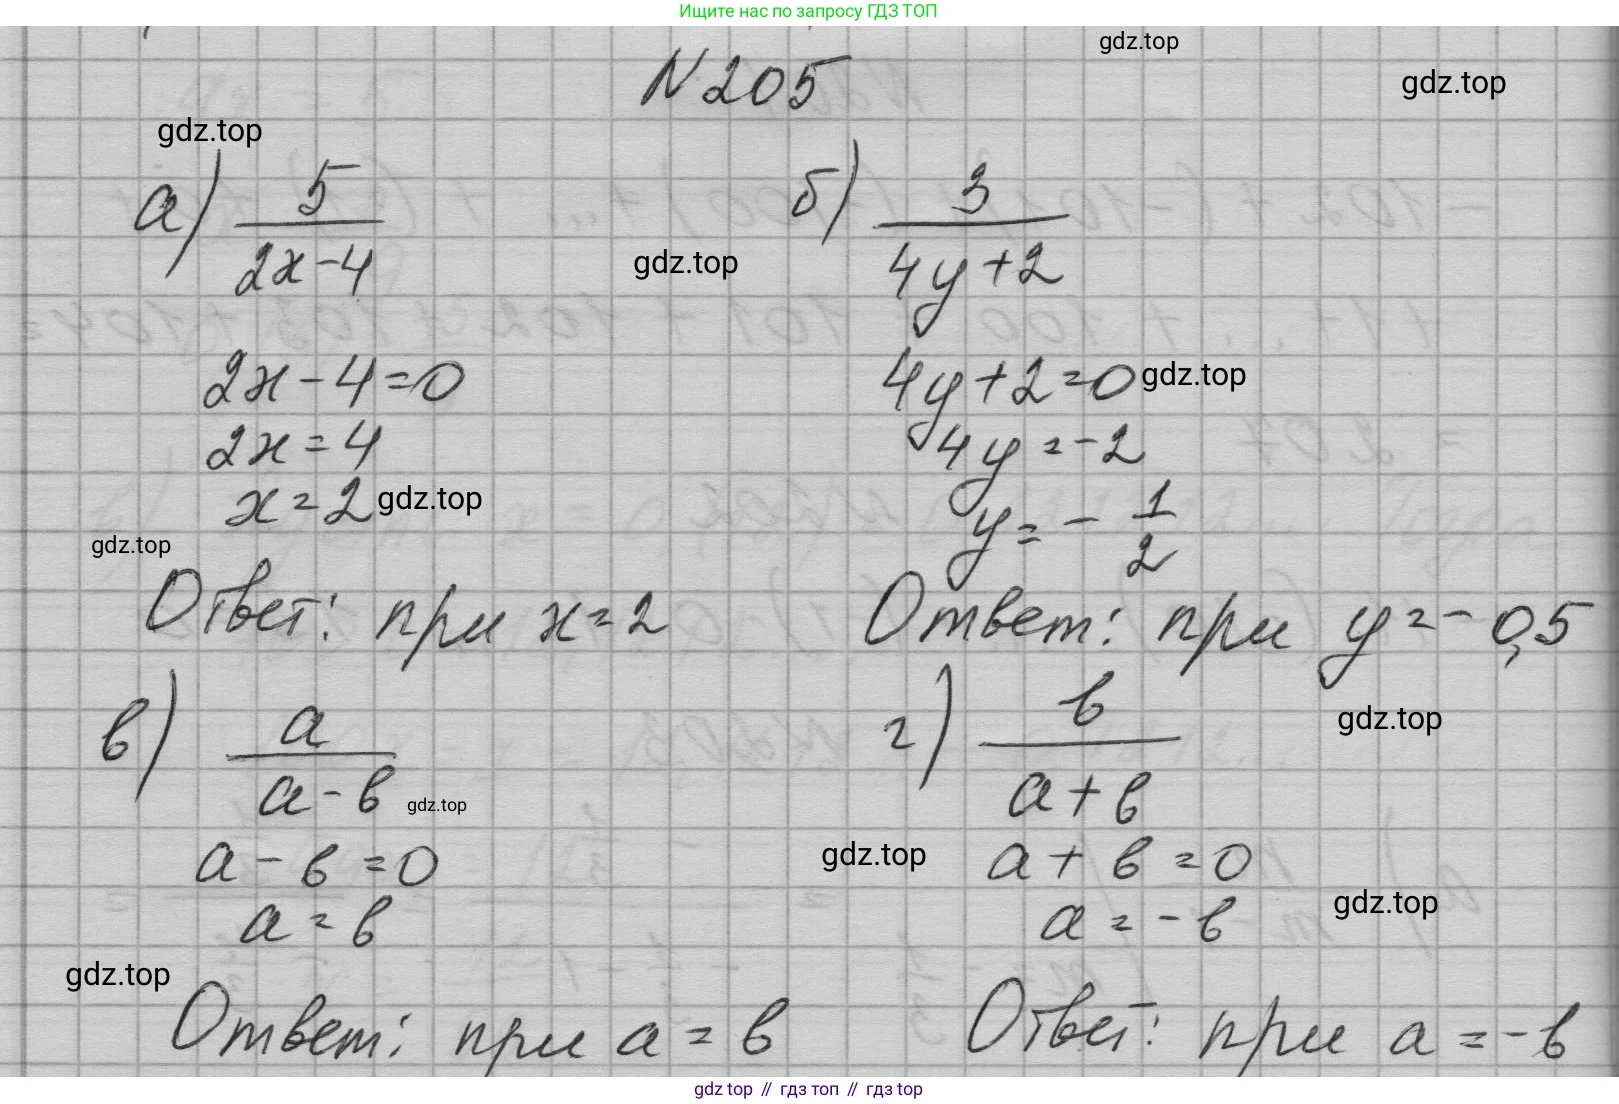 Ищите нас по запросу ГДЗ ТОП
gdz.top
N 205
gdz.top
gdz.top
а) 5/(2x-4)
б) 3/(4y+2)
gdz.top
2x-4=0
4y+2=0
gdz.top
2x=4
4y=-2
x=2
gdz.top
y=-1/2
gdz.top
Ответ: при x=2
Ответ: при y=-0,5
в) a/(a-b)
г) b/(a+b)
gdz.top
gdz.top
a-b=0
gdz.top
a+b=0
a=b
a=-b
gdz.top
gdz.top
Ответ: при a=b
Ответ: при a=-b
gdz top // гдз топ // гдз top